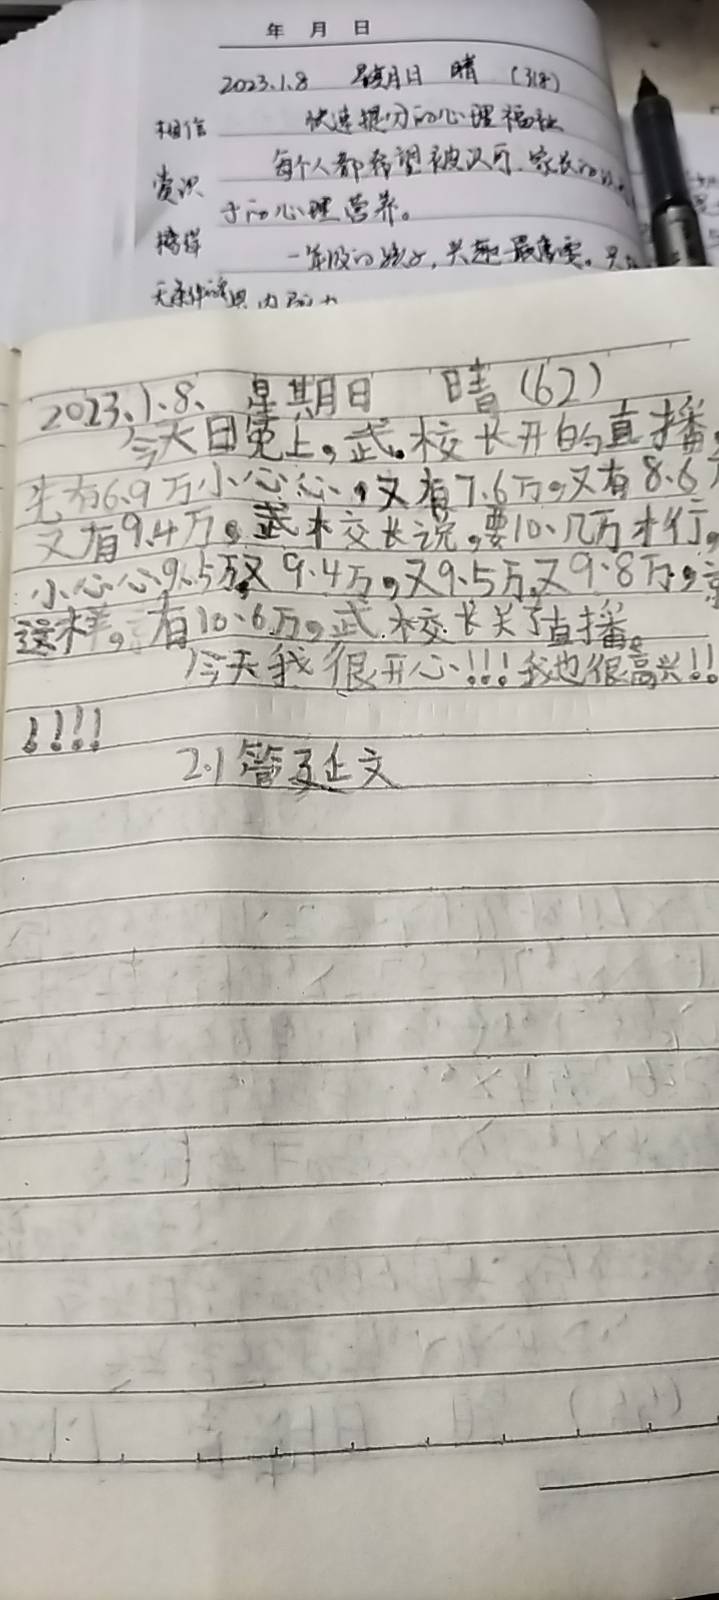 年 月 日
2023.1.8 星期日 晴 (318)
相信 快速提分的心理福祉
每个人都希望被认可.家长的
赏识
子的心理营养。
榜样 一年级的孩子,兴趣最重要。
无条件的
2023、1、8、 星期日 晴 (62)
今天日晚上,武.校长开的直播,
先有6.9万小心心,又有7.6万,又有8.6
又有9.4万,武校长说,要10、几万才行,
小心心9.5万又9.4万,又9.5万,又9.8万,
这样。有10、6万,武.校长关了直播。
今天我很开心!!!我也很高兴!!
!!!!
2.1管